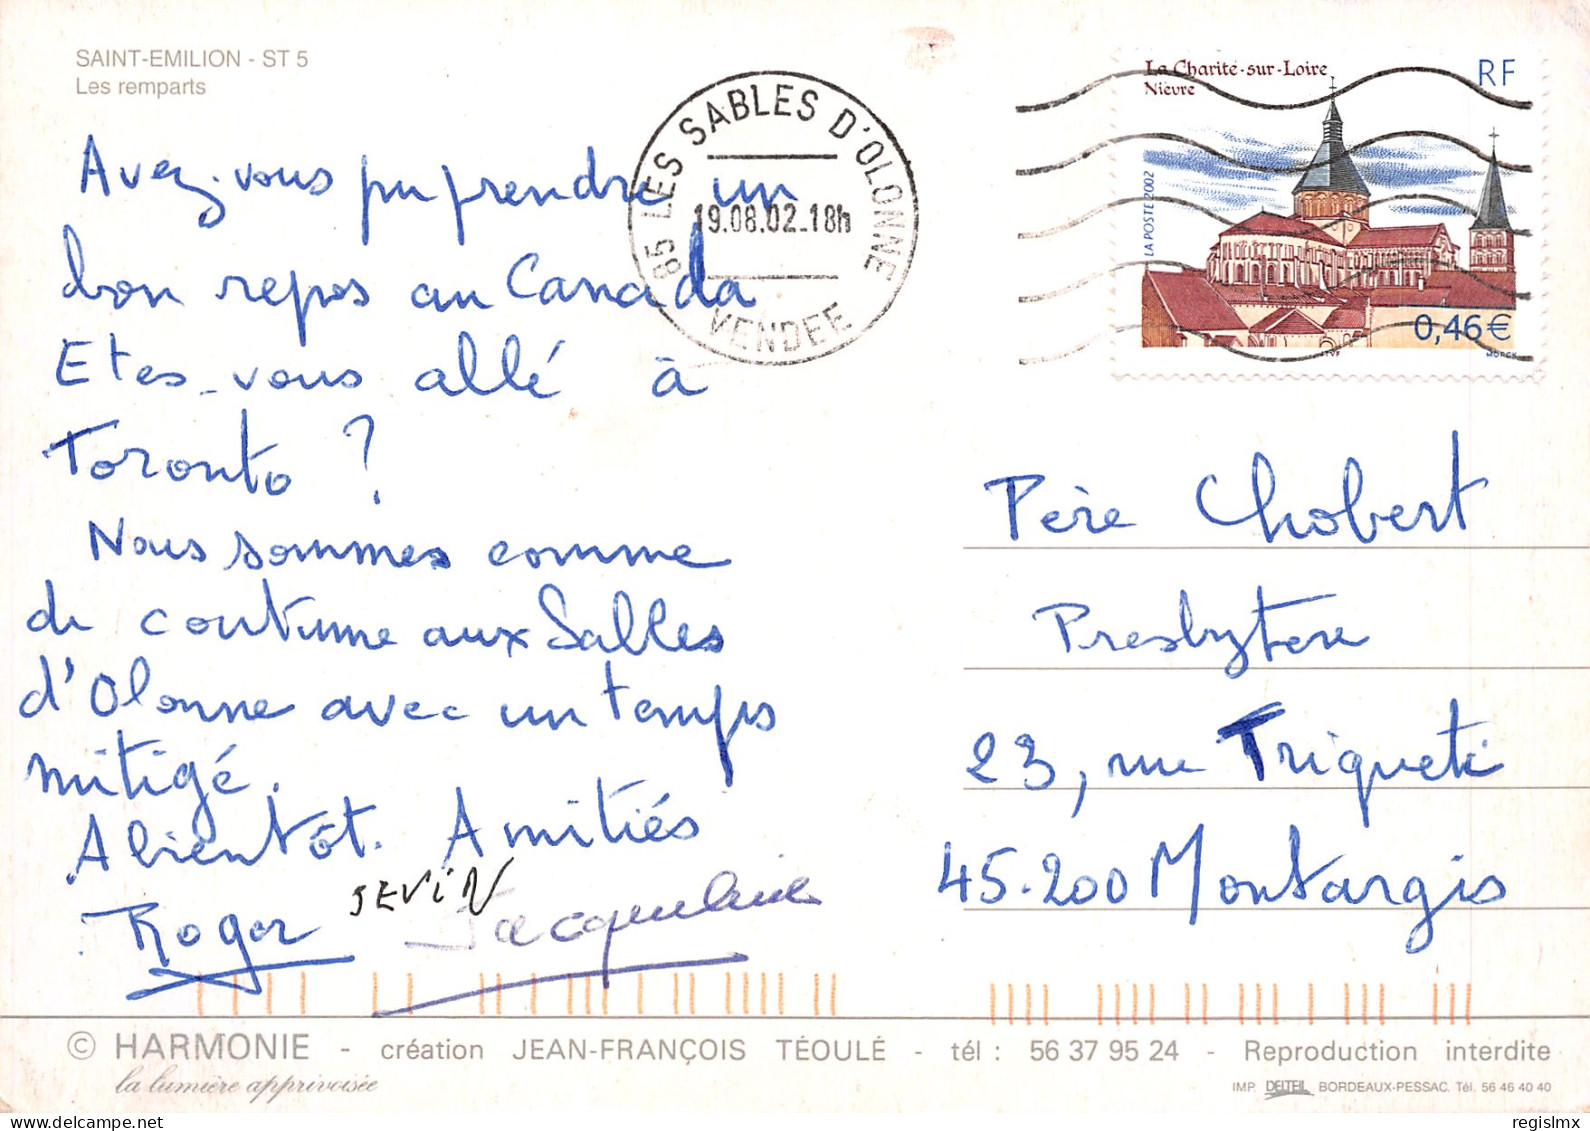 SAINT-EMILION - ST 5
Les remparts
Avez-vous pu prendre un
bon repos au Canada
Etes-vous allé à
Toronto ?
Nous sommes comme
de coutume aux Sables
d'Olonne avec un temps
mitigé.
A bientôt. Amitiés
Roger SEVIN Jacqueline
85 LES SABLES D'OLONNE
19.08.02.18h
VENDEE
La Charité-sur-Loire
Nièvre
RF
LA POSTE 2002
0,46€
ITVF
Père Chobert
Presbytère
23, rue Triqueti
45.200 Montargis
© HARMONIE - création JEAN-FRANÇOIS TÉOULÉ - tél : 56 37 95 24 - Reproduction interdite
la lumière apprivoisée
IMP. DELTEIL BORDEAUX-PESSAC. Tél. 56 46 40 40
© regislmx